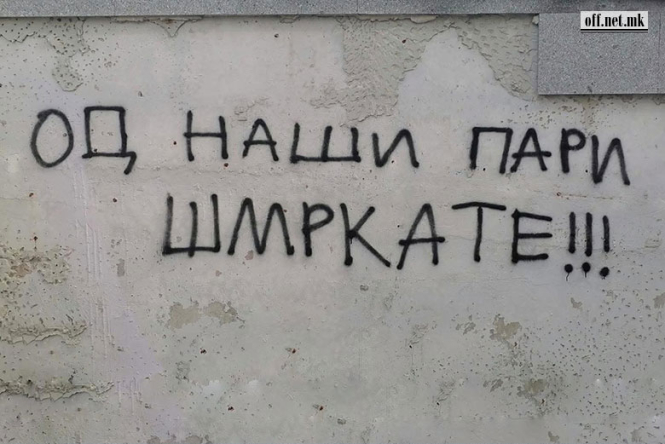 off.net.mk
ОД НАШИ ПАРИ
ШМРКАТЕ!!!